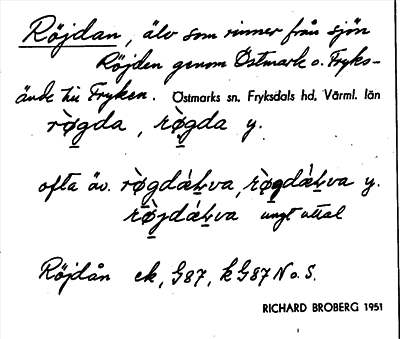 Röjdan, älv som rinner från sjön
Röjden genom Östmark o. Fryks-
ände till Fryken. Östmarks sn. Fryksdals hd. Värml. län
rø̀gda, rø̀gda y.
ofta äv. rø̀gdæ̀ḷva, rø̀gdæ̀ḷva y.
rø̀jdæ̀ḷva ungt uttal
Röjdån ek, G87, kG87 N o. S.
RICHARD BROBERG 1951